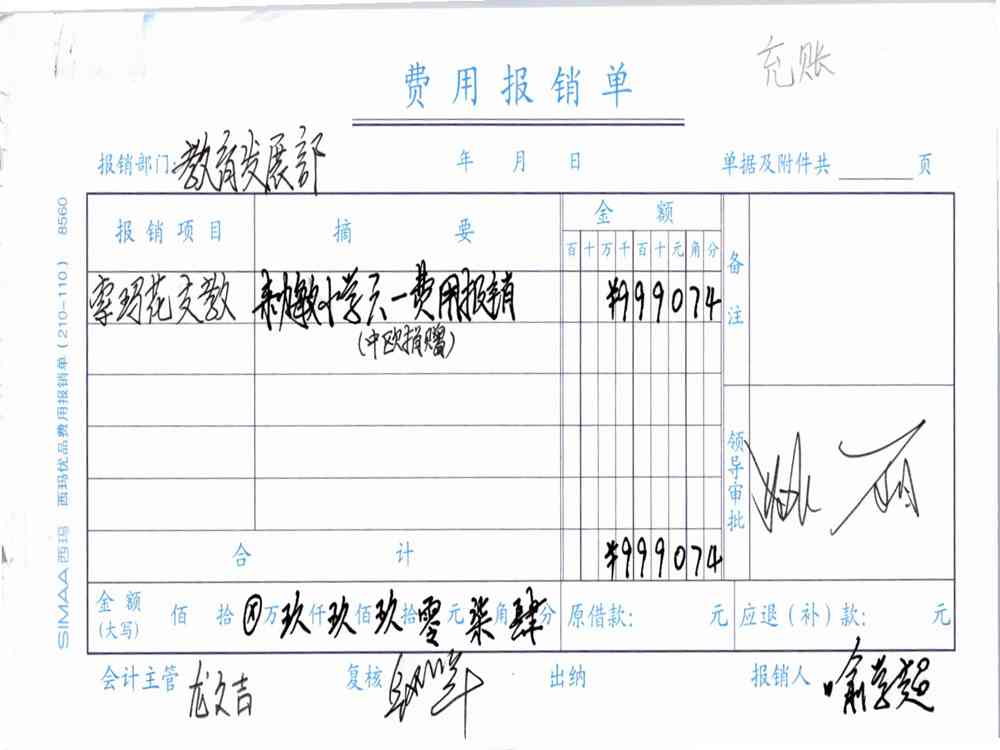 充账
费用报销单
报销部门: 教育发展部 年 月 日 单据及附件共 页
报销项目 摘要 金额 备注
百十万千百十元角分
小学 一费用报销 ¥999074
(中欧捐赠)
领导审批
合计 ¥999074
金额(大写) 佰 拾 ⊗万玖仟玖佰玖拾零元柒角肆分 原借款: 元 应退(补)款: 元
会计主管 龙文吉 复核 出纳 报销人 喻学超
SIMAA西玛 西玛优品费用报销单(210-110) 8560